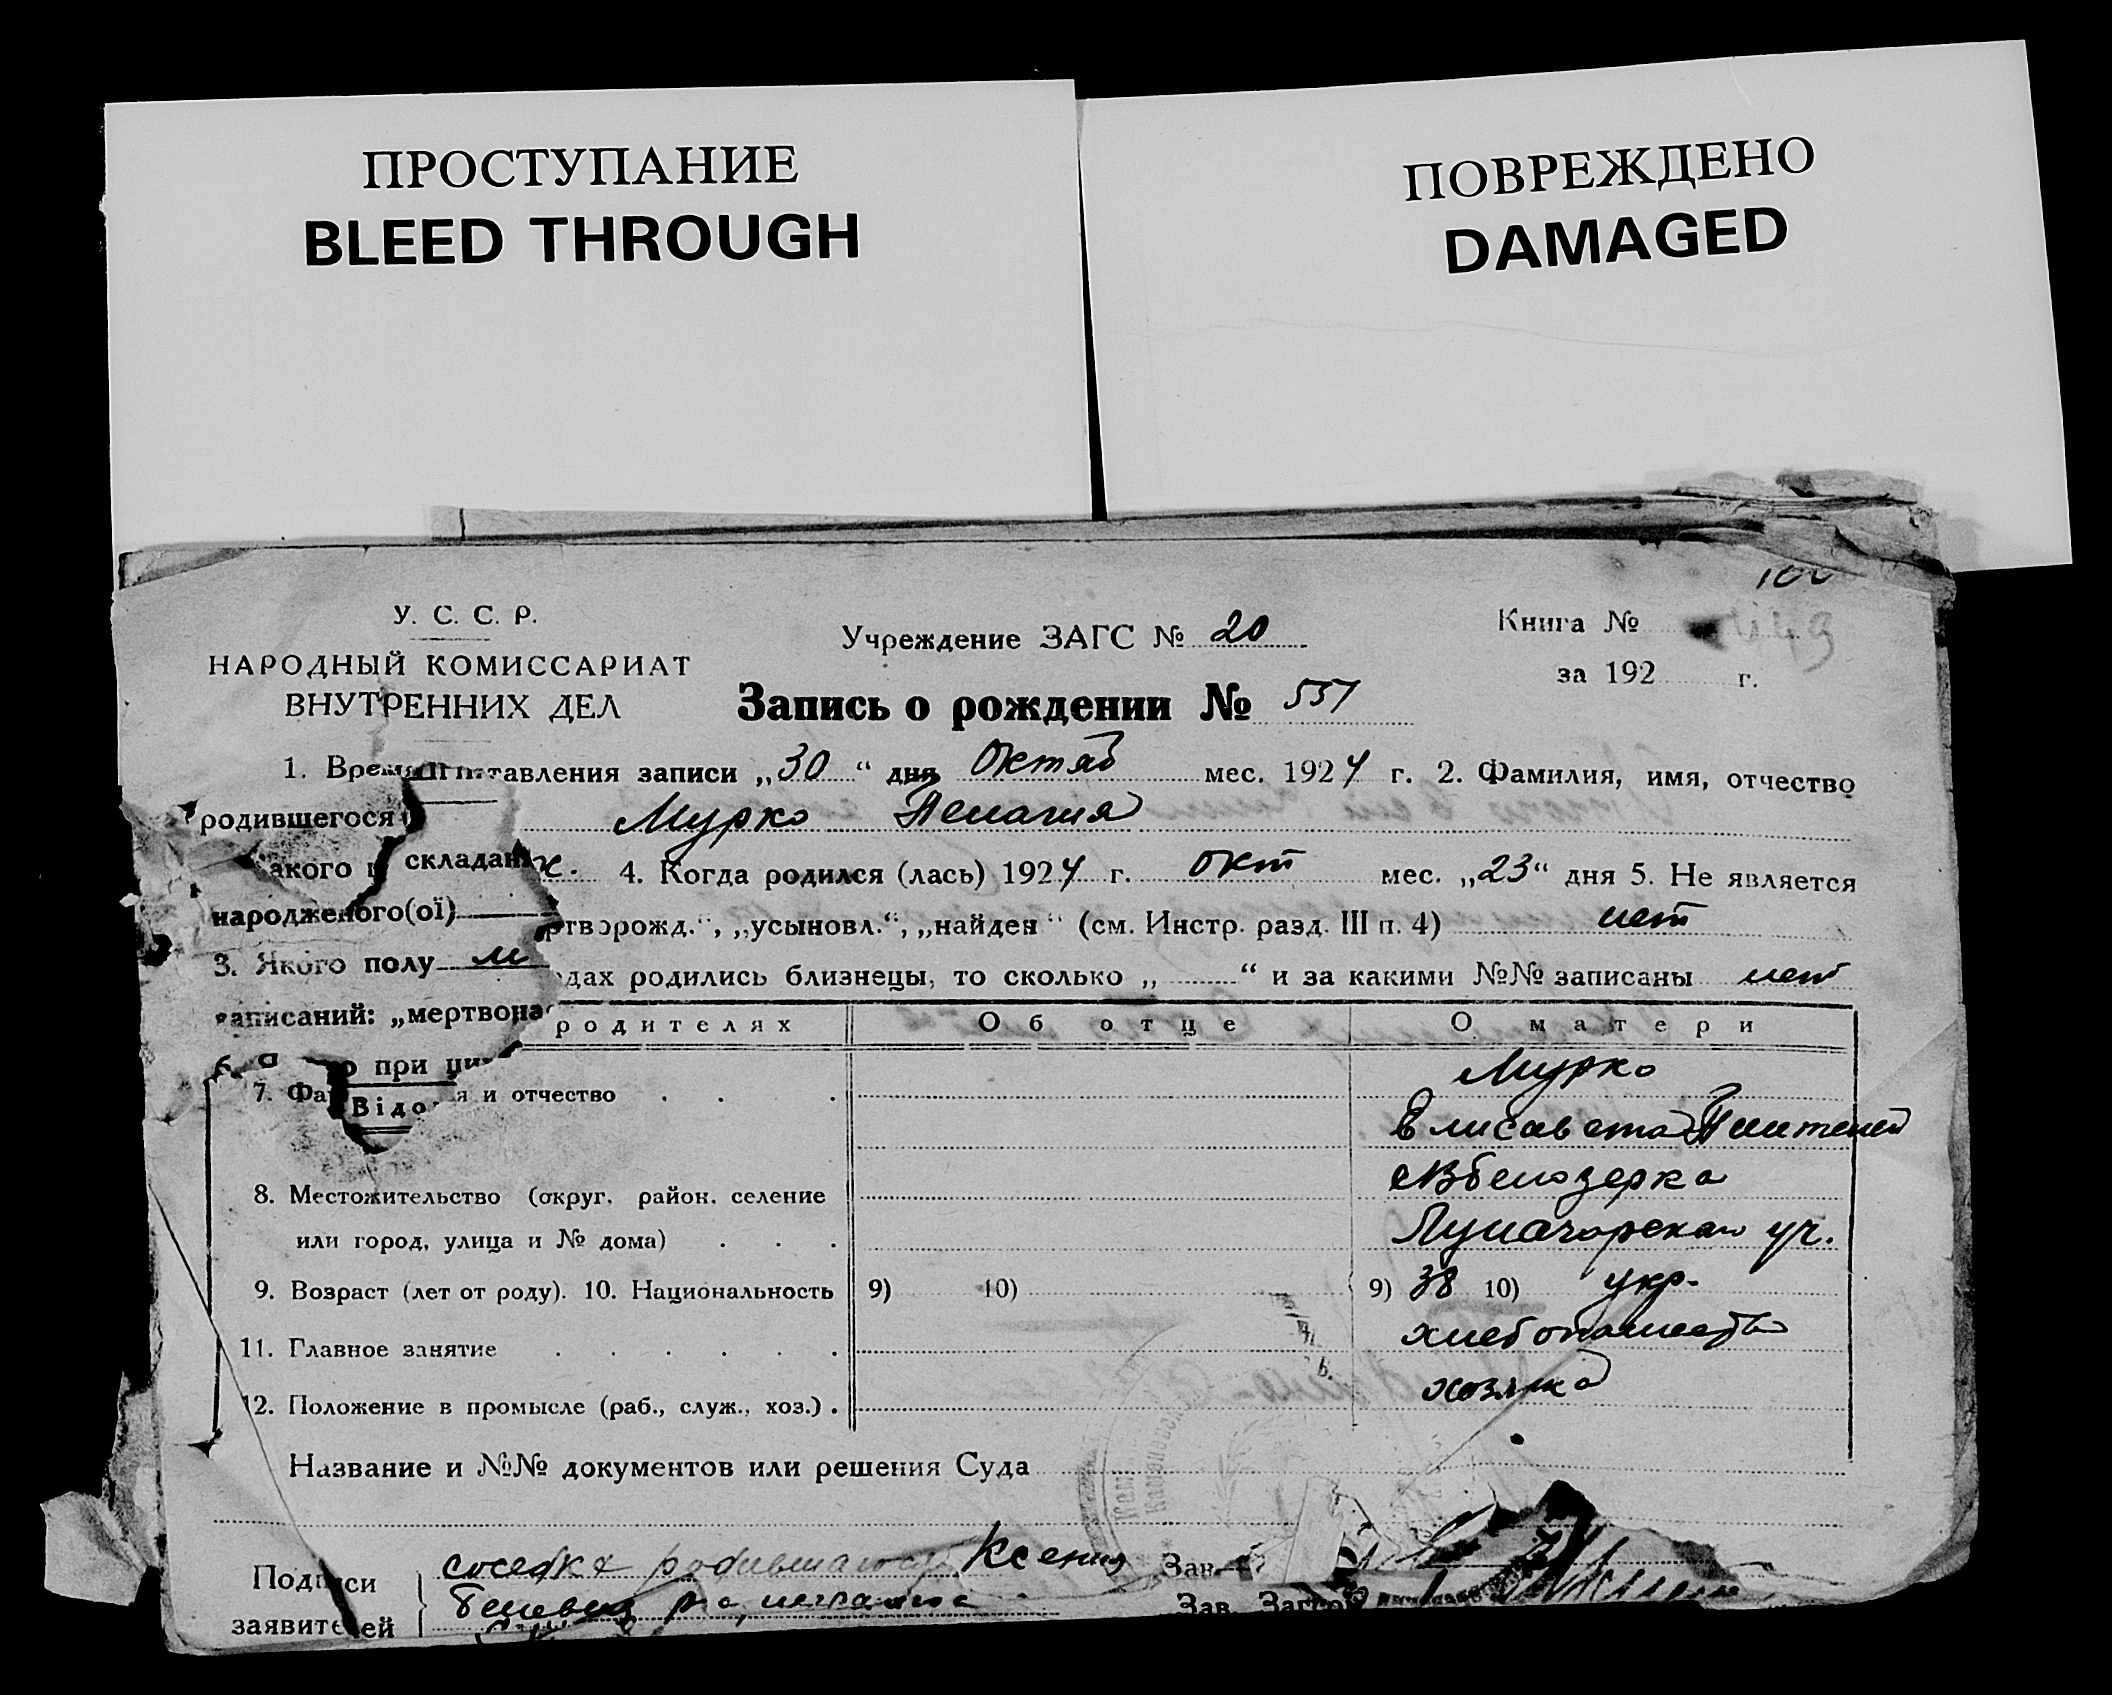 ПРОСТУПАНИЕ
BLEED THROUGH
ПОВРЕЖДЕНО
DAMAGED
У. С. С. Р.
НАРОДНЫЙ КОМИССАРИАТ
ВНУТРЕННИХ ДЕЛ
Учреждение ЗАГС № 20
Книга №
за 192 г.
Запись о рождении № 557
1. Время тавления записи „30“ дня Октяб мес. 1924 г. 2. Фамилия, имя, отчество
родившегося Мурко Пелагия
акого ж. 4. Когда родился (лась) 1924 г. окт мес. „23“ дня 5. Не является
складан
народженого(ої) ртворожд.“, „усыновл.“, „найден“ (см. Инстр. разд. III п. 4) нет
3. Якого полу м дах родились близнецы, то сколько „ “ и за какими №№ записаны нет
записаний: „мертвона
родителях Об отце О матери
при ци
7. Фа я и отчество Мурко
Відо
Елисавета
8. Местожительство (округ. район. селение Белозерка
или город, улица и № дома) уч.
9. Возраст (лет от роду). 10. Национальность 9) 10) 9) 38 10) укр.
11. Главное занятие хлебопашество
12. Положение в промысле (раб., служ., хоз.) хозяйка
Название и №№ документов или решения Суда
Подписи соседка родившагося Ксения Зав.
заявителей Зав. Загсом